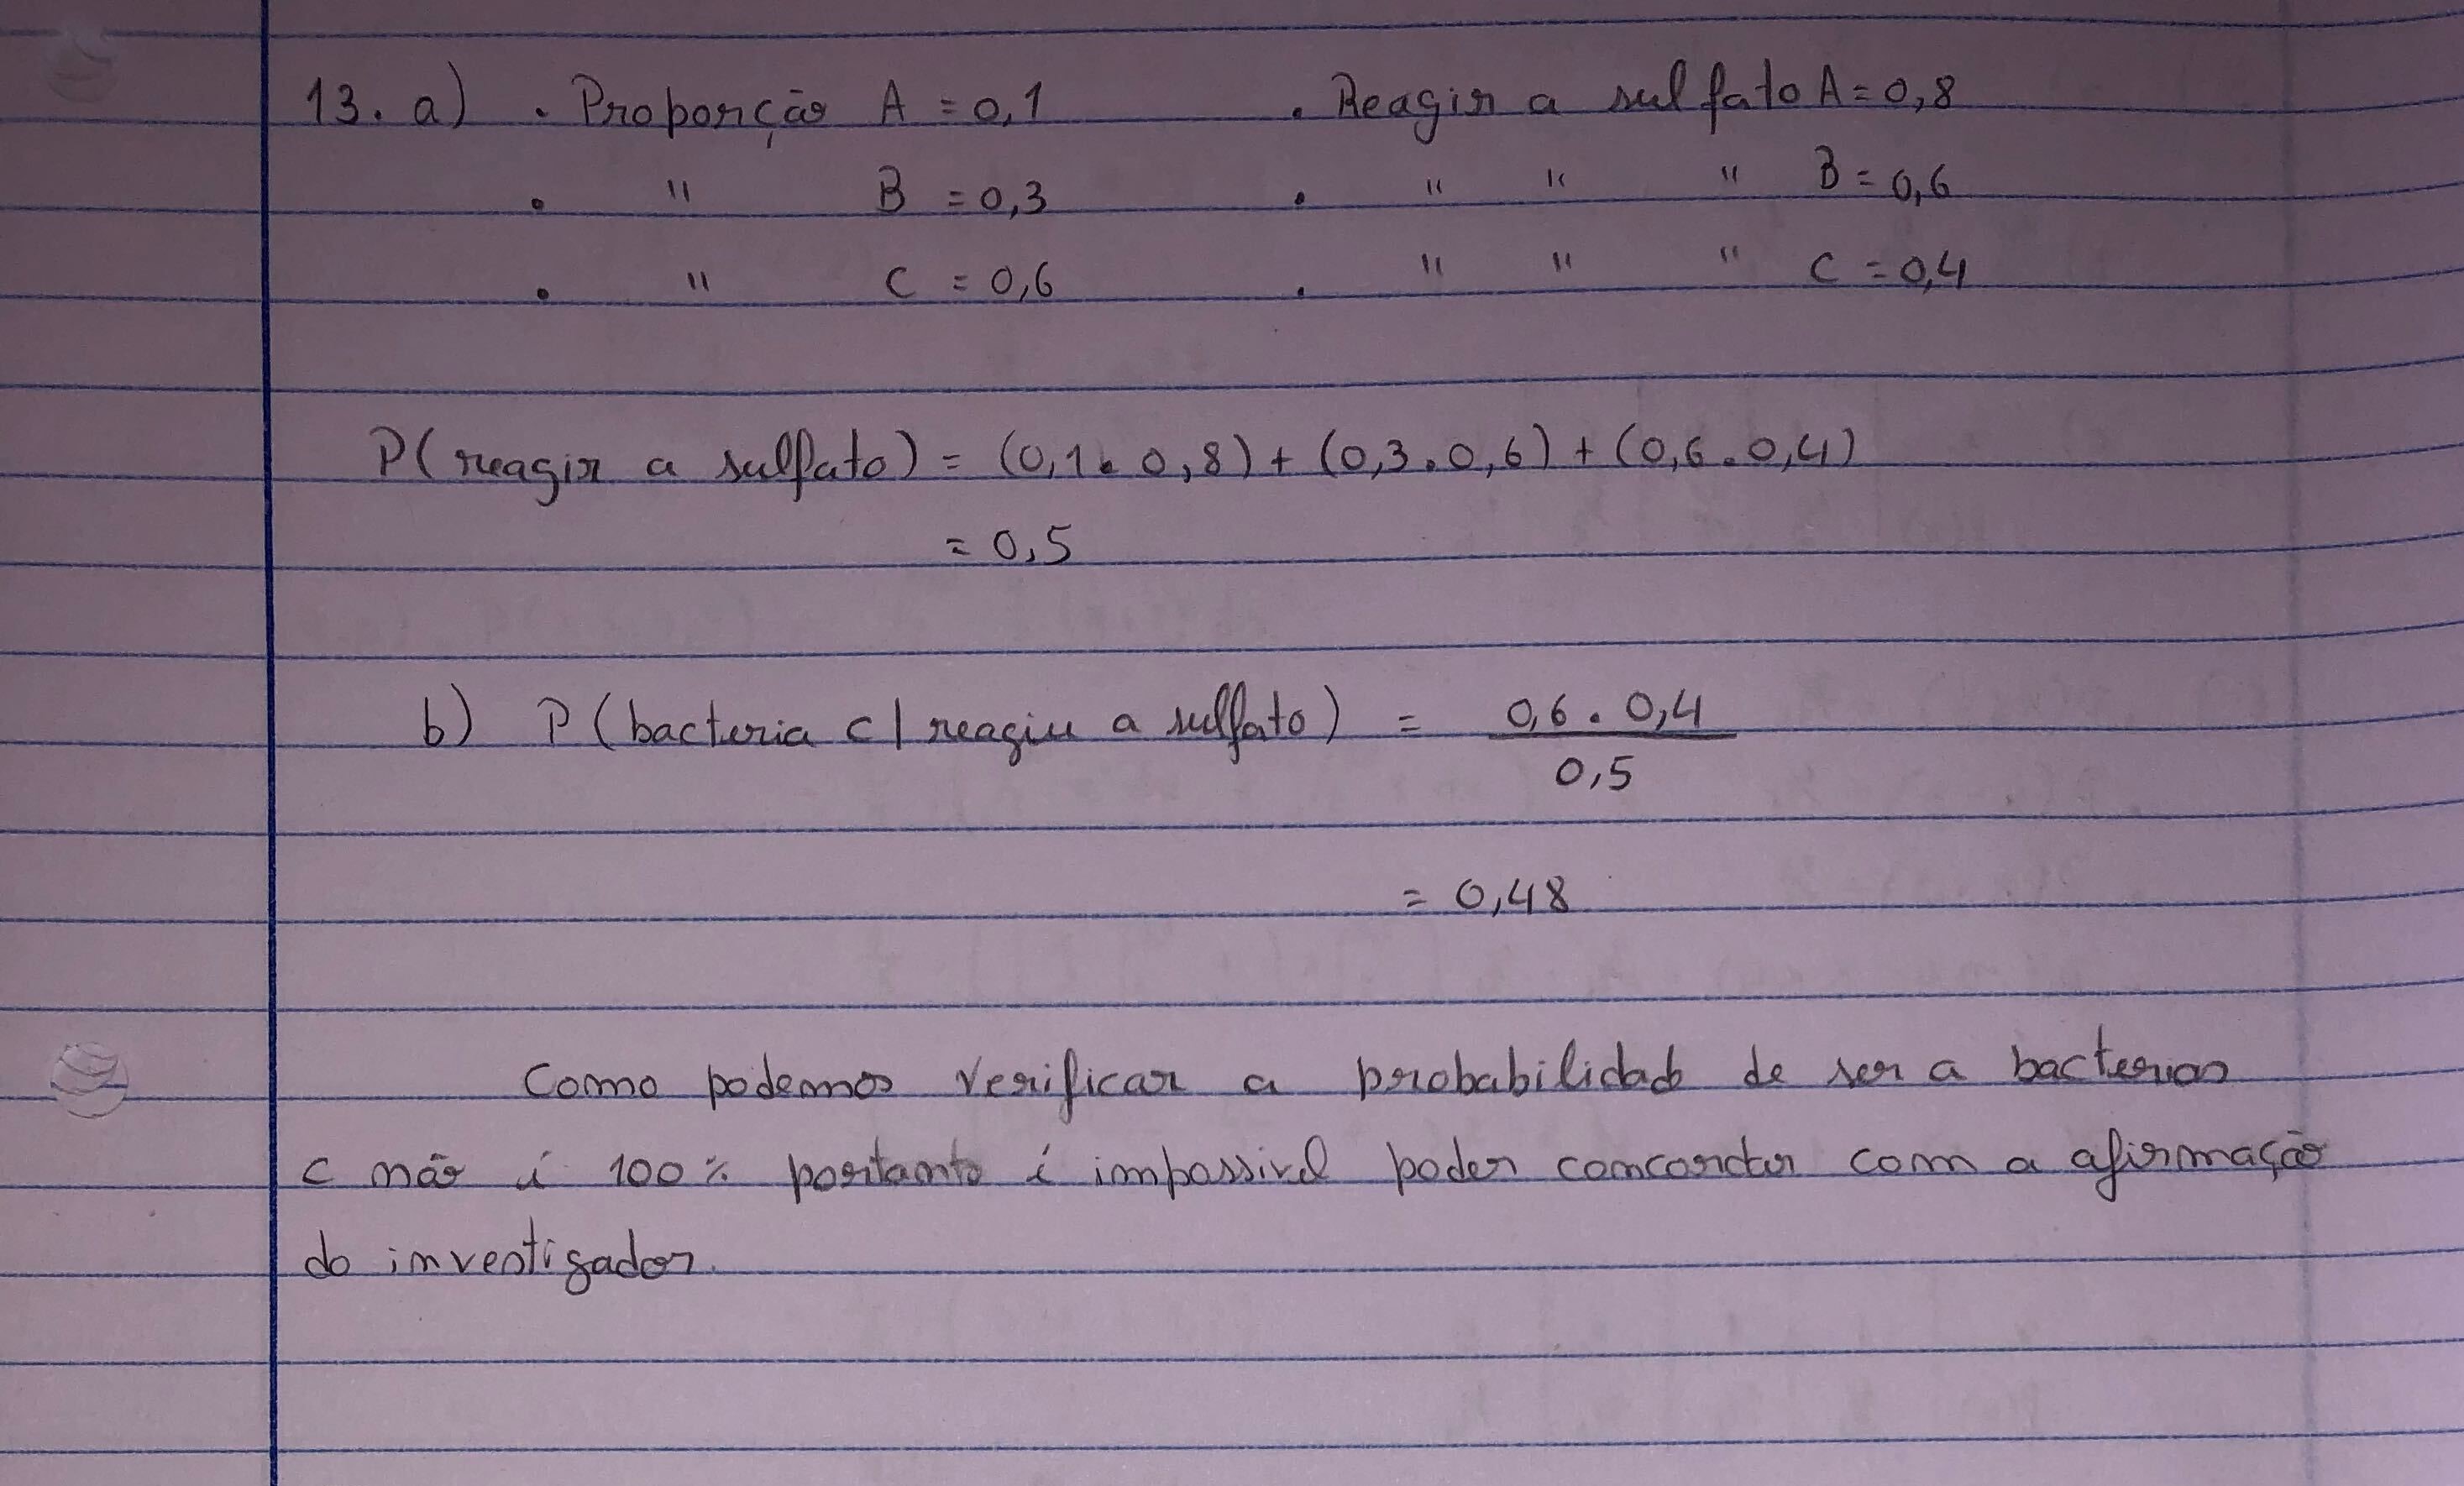 13. a) . Proporção A = 0,1 . Reagir a sulfato A = 0,8
. " B = 0,3 . " " " B = 0,6
. " C = 0,6 . " " " C = 0,4
P( reagir a sulfato) = (0,1 . 0,8) + (0,3 . 0,6) + (0,6 . 0,4)
= 0,5
b) P (bacteria c | reagiu a sulfato) = 0,6 . 0,4
0,5
= 0,48
Como podemos verificar a probabilidade de ser a bacterias
c não é 100% portanto é impossivel poder concordar com a afirmação
do investigador.